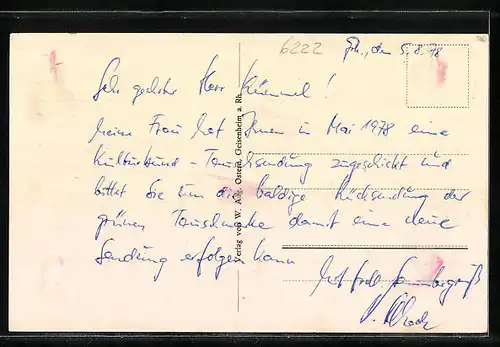 6222
, den 5.8.78
Sehr geehrter Herr Kümmel!
meine Frau hat Ihnen in Mai 1978 eine
Kulturbund - Tauschsendung zugeschickt und
bittet Sie um die baldige Rücksendung der
grünen damit eine neue
Sendung erfolgen kann
Mit
Verlag von W. Aug. Ostreit, Geisenheim a. Rh.